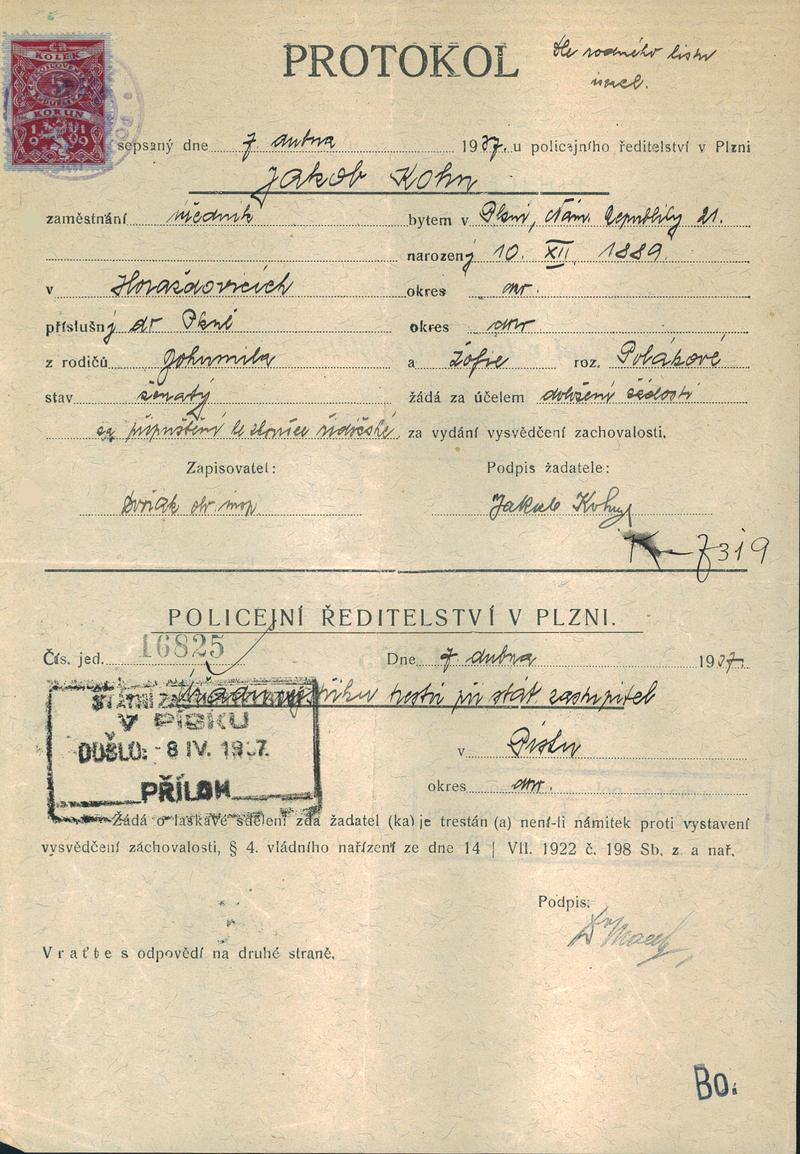 KOLEK
5
KORUN
1919
PROTOKOL
dle rodného listu
sepsaný dne 7 dubna 1937. u policejního ředitelství v Plzni
Jakob Kohn
zaměstnání úředník bytem v Plzni, Nám. Republiky 21.
narozený 10. XII. 1889.
v Horažďovicích okres
příslušný do Plzně okres
z rodičů Bohumila a Žofie roz. Polákové
stav ženatý žádá za účelem doložení žádosti
za připuštění ke zkoušce řidičské, za vydání vysvědčení zachovalosti.
Zapisovatel: Podpis žadatele:
Jakub Kohn
K-7319
POLICEJNÍ ŘEDITELSTVÍ V PLZNI.
Čís. jed. 16825 Dne 7 dubna 1937.
trestů při stát. zastupitel
V PÍSKU
DOŠLO: - 8 IV. 1937.
PŘÍLOH
v Písku
okres
Žádá o laskavé sdělení zda žadatel (ka) je trestán (a) není-li námitek proti vystavení
vysvědčení záchovalosti, § 4. vládního nařízení ze dne 14 | VII. 1922 č. 198 Sb. z. a nař.
Podpis:
Vraťte s odpovědí na druhé straně.
Bo.